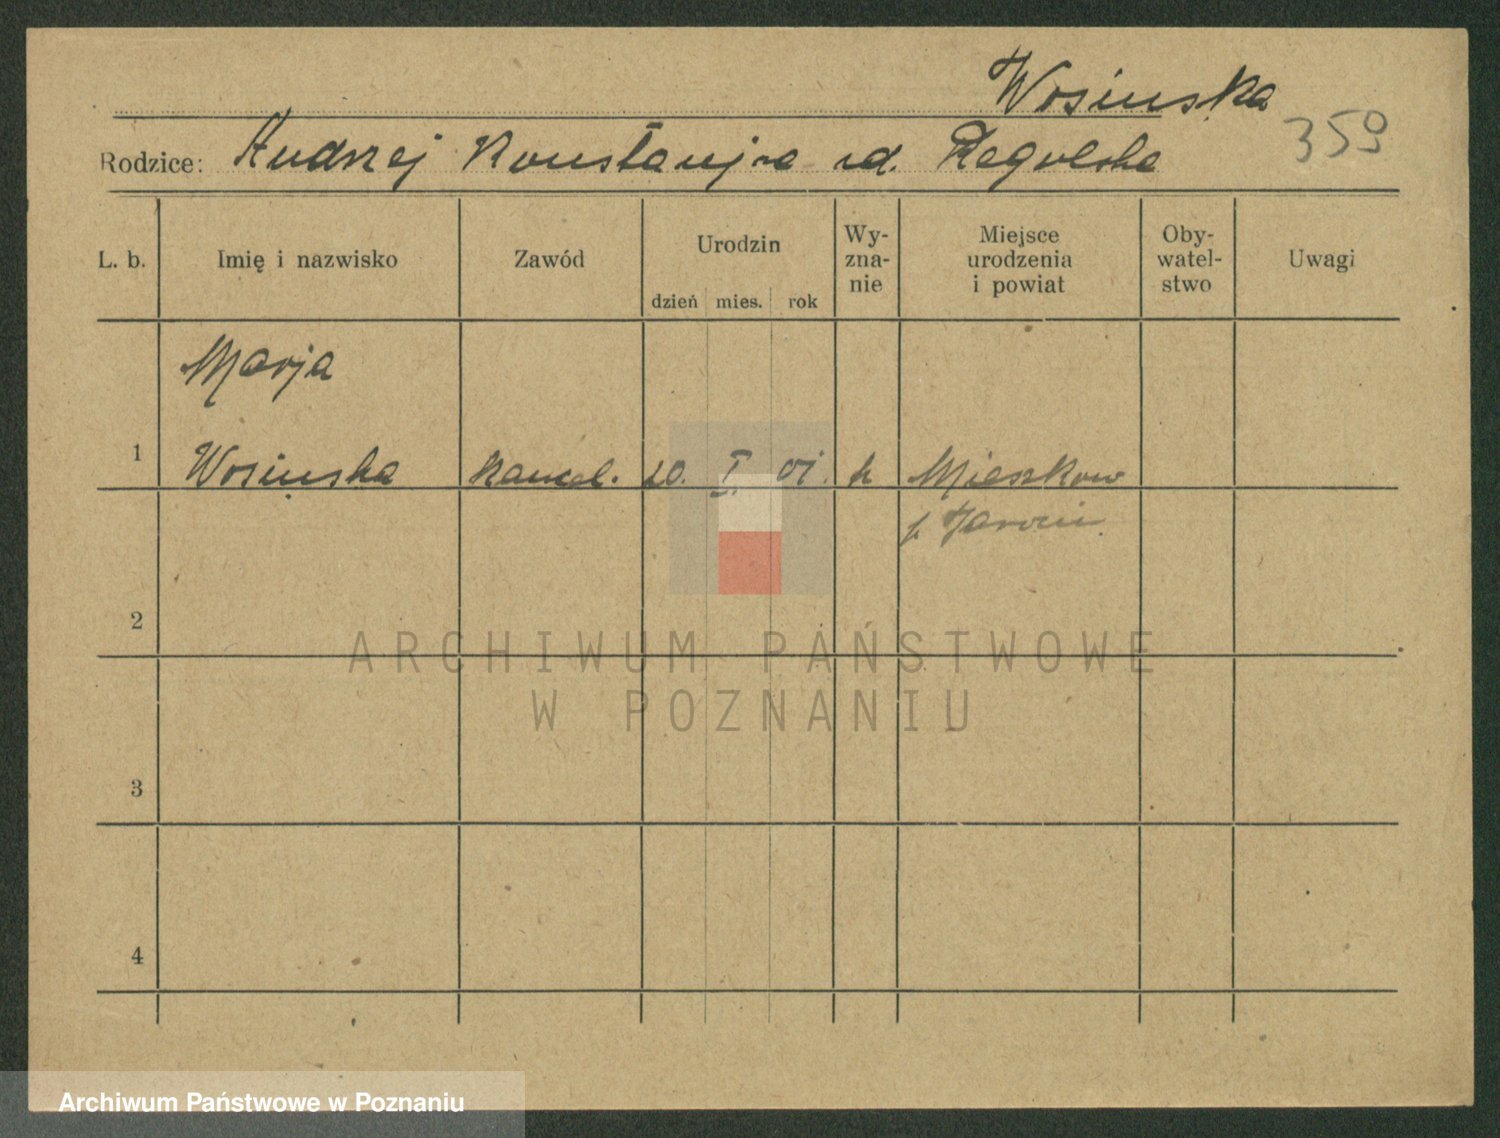 Wosinska
359
Rodzice: Andrzej Konstancja
L. b. Imię i nazwisko Zawód Urodzin dzień mies. rok Wy-zna-nie Miejsce urodzenia i powiat Oby-watel-stwo Uwagi
Marja
1 Wosinska kancel. 20. I. 01. k Mieszkow
p Jarocin
2
3
4
ARCHIWUM PAŃSTWOWE
W POZNANIU
Archiwum Państwowe w Poznaniu